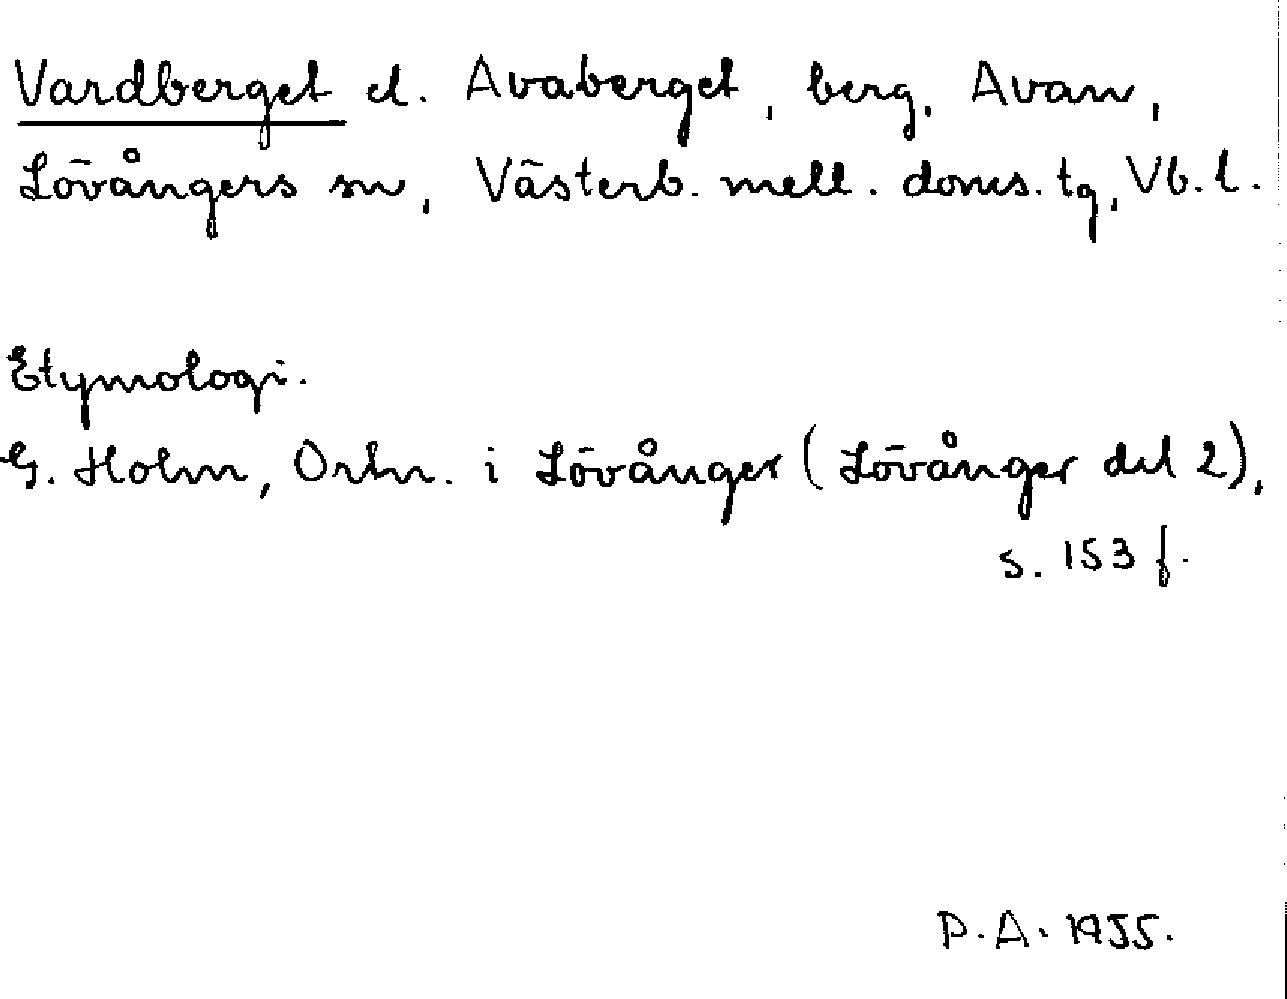 Vardberget el. Avaberget, berg, Avan,
Lövångers sn, Västerb. mell. doms. tg, Vb. l.
Etymologi.
G. Holm, Ortn. i Lövånger (Lövånger del 2),
s. 153 f.
P. A. 1955.